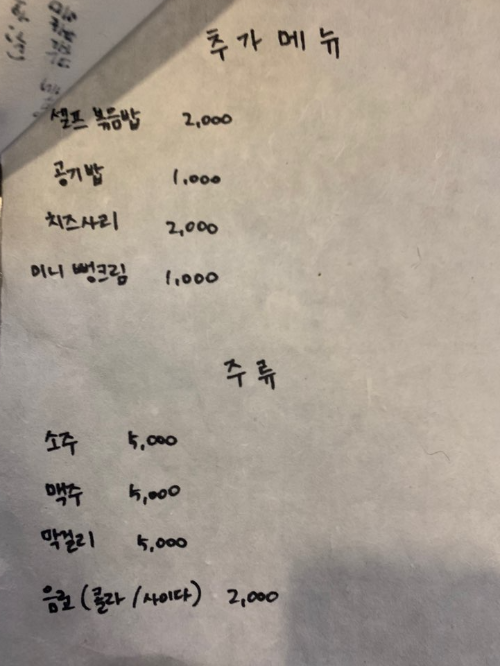 추가메뉴
셀프 볶음밥 2,000
공기밥 1,000
치즈사리 2,000
미니 뻥크림 1,000
주류
소주 5,000
맥주 5,000
막걸리 5,000
음료 (콜라 / 사이다) 2,000